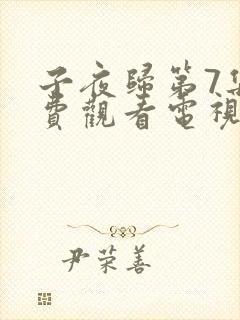 子夜歸第7集
費觀看電視
尹荣善